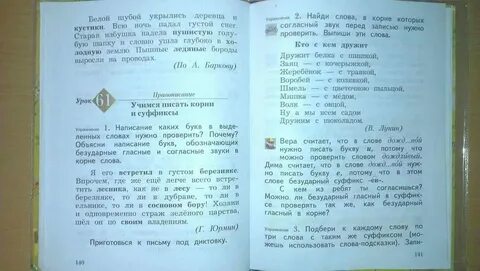 Белой шубой укрылись деревца и
кустики. Всю ночь падал густой снег.
Старая избушка надела пушистую голу-
бую шапку и словно ушла глубоко в хо-
лодную землю. Пышные ледяные бороды
выросли на проводах.
(По А. Баркову)
Урок 61
Правописание
Учимся писать корни
и суффиксы
Упражнение 1. Написание каких букв в выде-
ленных словах нужно проверить? Почему?
Объясни написание букв, обозначающих
безударные гласные и согласные звуки в
корне слова.
Я его встретил в густом березняке.
Впрочем, где же ещё легче всего встре-
тить лесника, как не в лесу — то ли в
березняке, то ли в дубраве, то ли в
ельнике, то ли в сосновом бору! Хозяин
и одновременно страж зелёного царства,
шёл он по своим владениям.
(Г. Юрмин)
Приготовься к письму под диктовку.
140
Упражнение 2. Найди слова, в корне которых
согласный звук перед записью нужно
проверить. Выпиши эти слова.
Кто с кем дружит
Дружит белка с шишкой,
Заяц — с кочерыжкой,
Жеребёнок — с травой,
Воробей — с козявкой,
Шмель — с цветочною пыльцой,
Мишка — с мёдом,
Волк — с овцой,
Ну а мы зачем-то
Дружим с шоколадом.
(В. Лунин)
Вера считает, что в слове дожд..вой
нужно писать букву и, потому что
можно проверить словом дождливый.
Дима считает, что в слове дожд..вой
нужно писать букву е, потому что в этом
слове безударный суффикс -ев-.
С кем из ребят ты согласишься?
Можно ли безударный гласный в суффик-
се проверять так же, как безударный
гласный в корне?
Упражнение 3. Подбери к каждому слову по
три слова с таким же суффиксом (мо-
жешь использовать слова-подсказки). Запи-
141